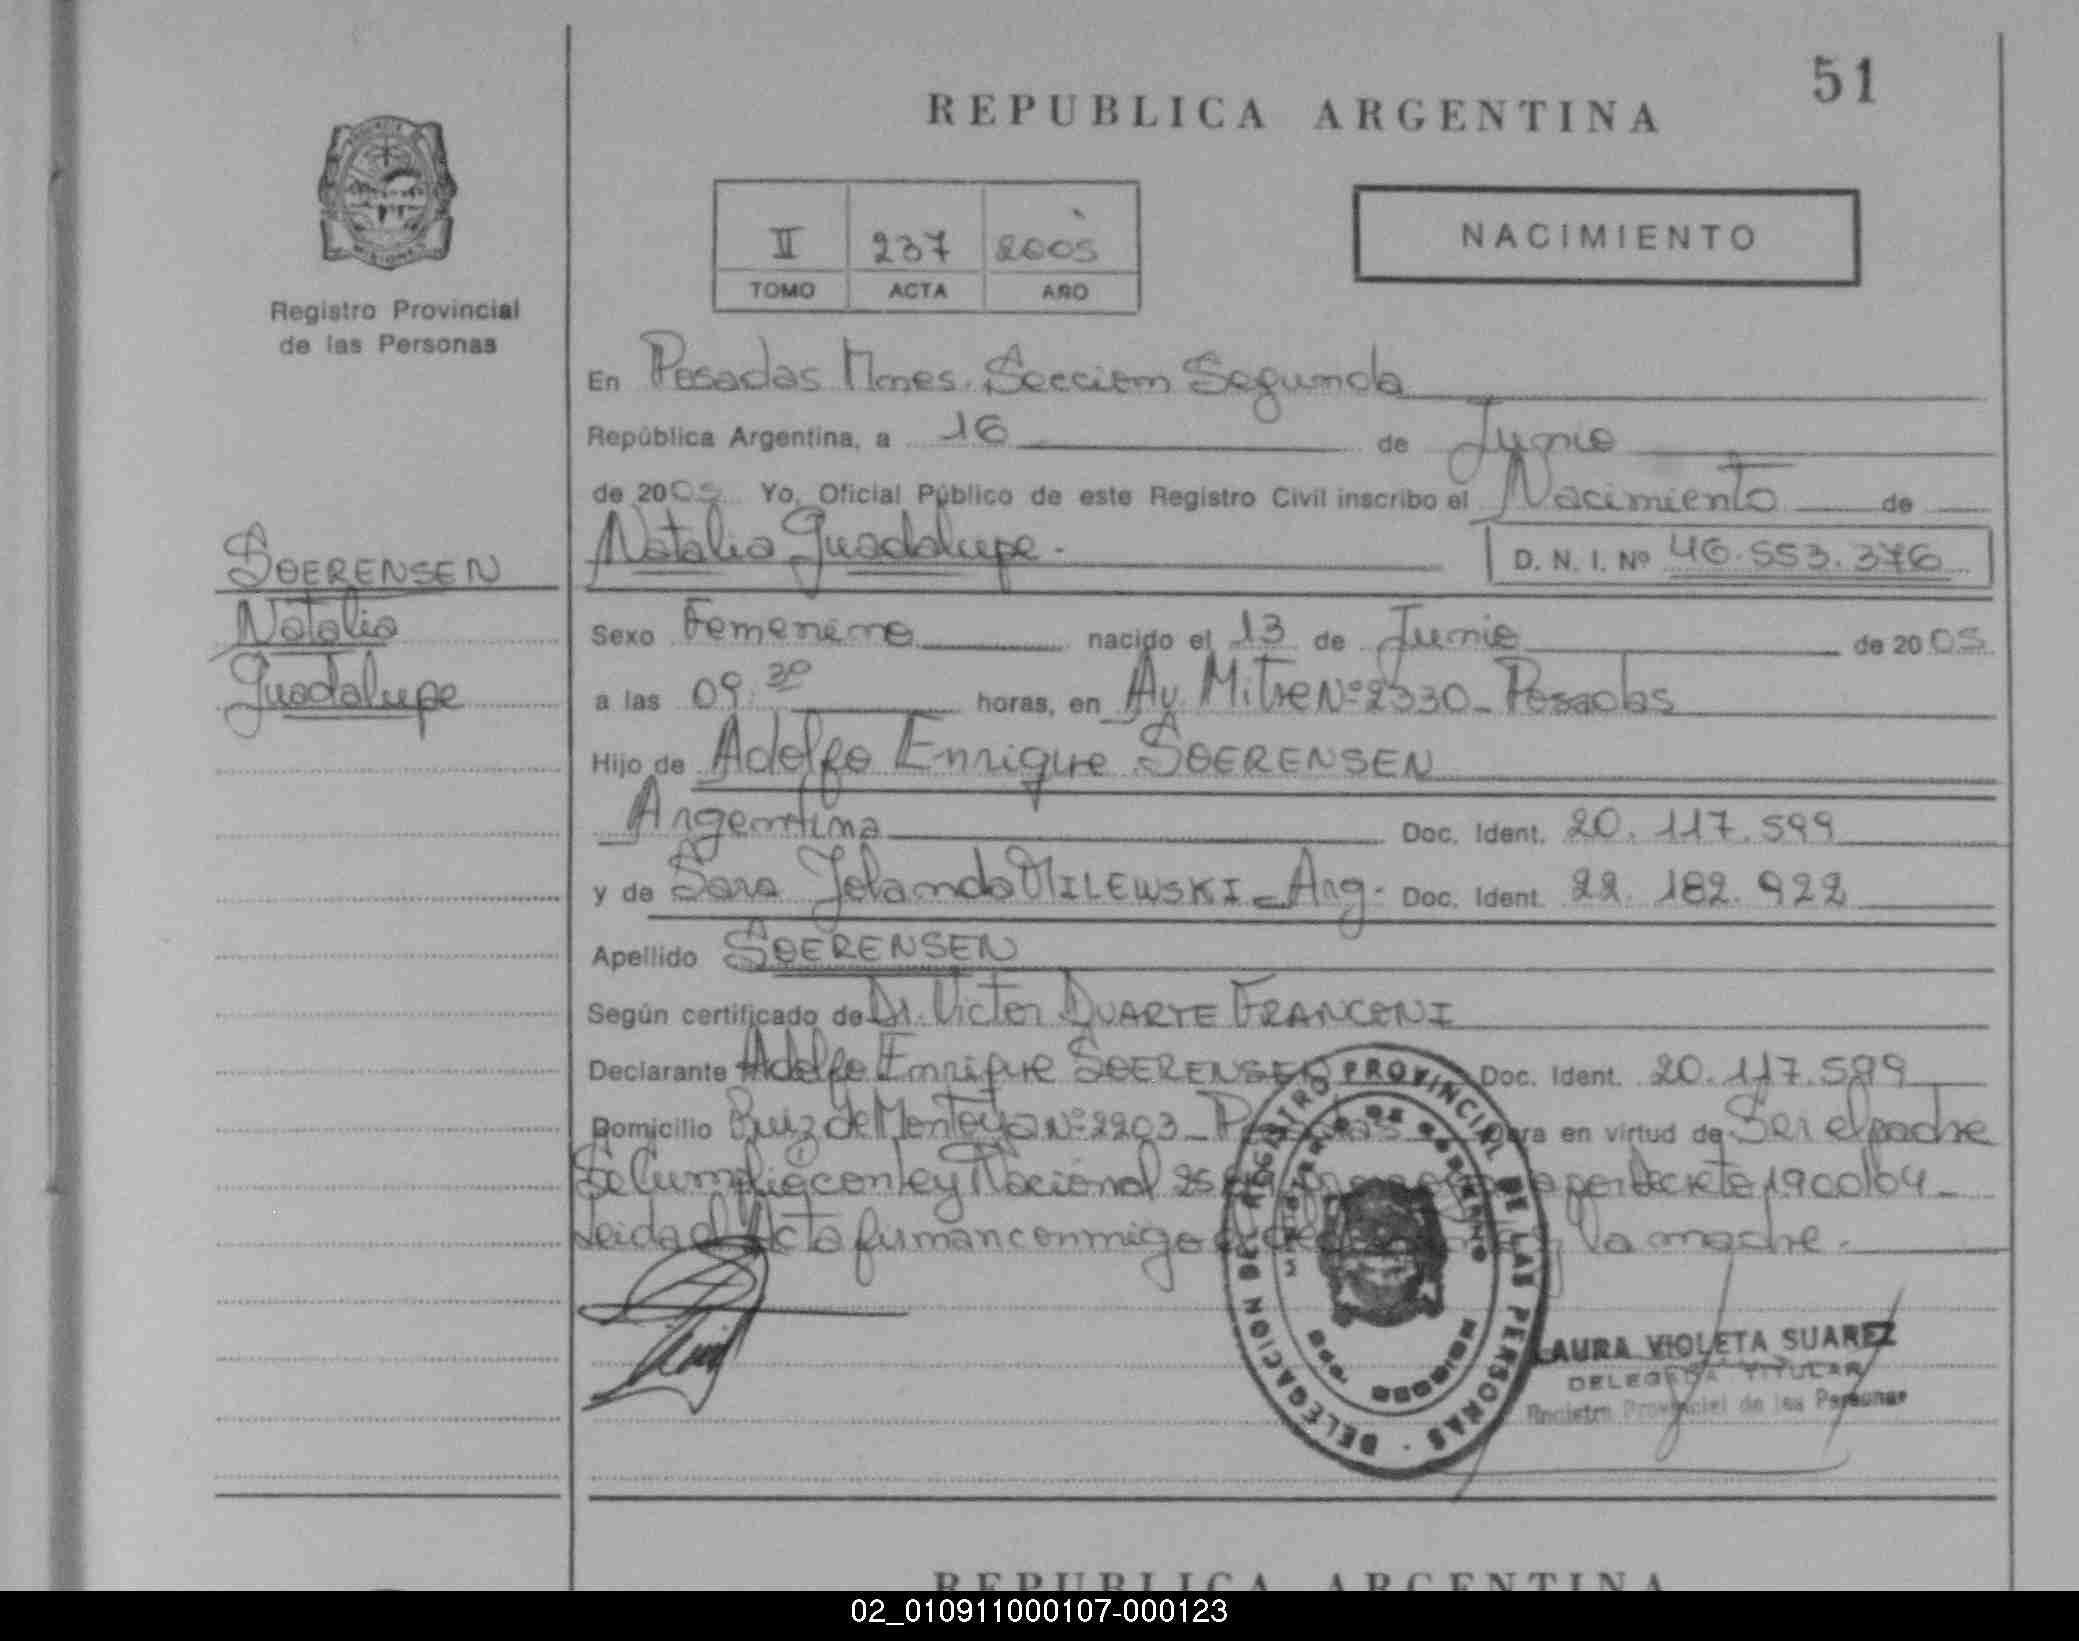 51
REPUBLICA ARGENTINA
II 237 2005
TOMO ACTA AÑO
NACIMIENTO
Registro Provincial
de las Personas
En Posadas Mnes. Seccion Segunda
República Argentina, a 16 de Junio
de 2005 Yo, Oficial Público de este Registro Civil inscribo el Nacimiento de
Natalia Guadalupe.
D. N. I. Nº 46.553.376
SOERENSEN
Natalia
Guadalupe
Sexo Femenino nacido el 13 de Junio de 2005
a las 09:30 horas, en Av. Mitre Nº 2330 - Posadas
Hijo de Adolfo Enrique SOERENSEN
Argentina Doc. Ident. 20.117.599
y de Sara Yolanda MILEWSKI - Arg. Doc. Ident. 22.182.922
Apellido SOERENSEN
Según certificado de Dr. Victor DUARTE FRANCONI
Declarante Adolfo Enrique SOERENSEN Doc. Ident. 20.117.599
Domicilio Ruiz de Montoya Nº 2203 - Posadas Obra en virtud de Ser el padre
Se Cumplió con ley Nacional 25 por decreto 1900/04 -
Leida el Acta firman conmigo el y la madre.
DELEGACION DE REGISTRO PROVINCIAL DE LAS PERSONAS
MINISTERIO DE GOBIERNO
LAURA VIOLETA SUAREZ
DELEGADA TITULAR
Registro Provincial de las Personas
REPUBLICA ARGENTINA
02_010911000107-000123